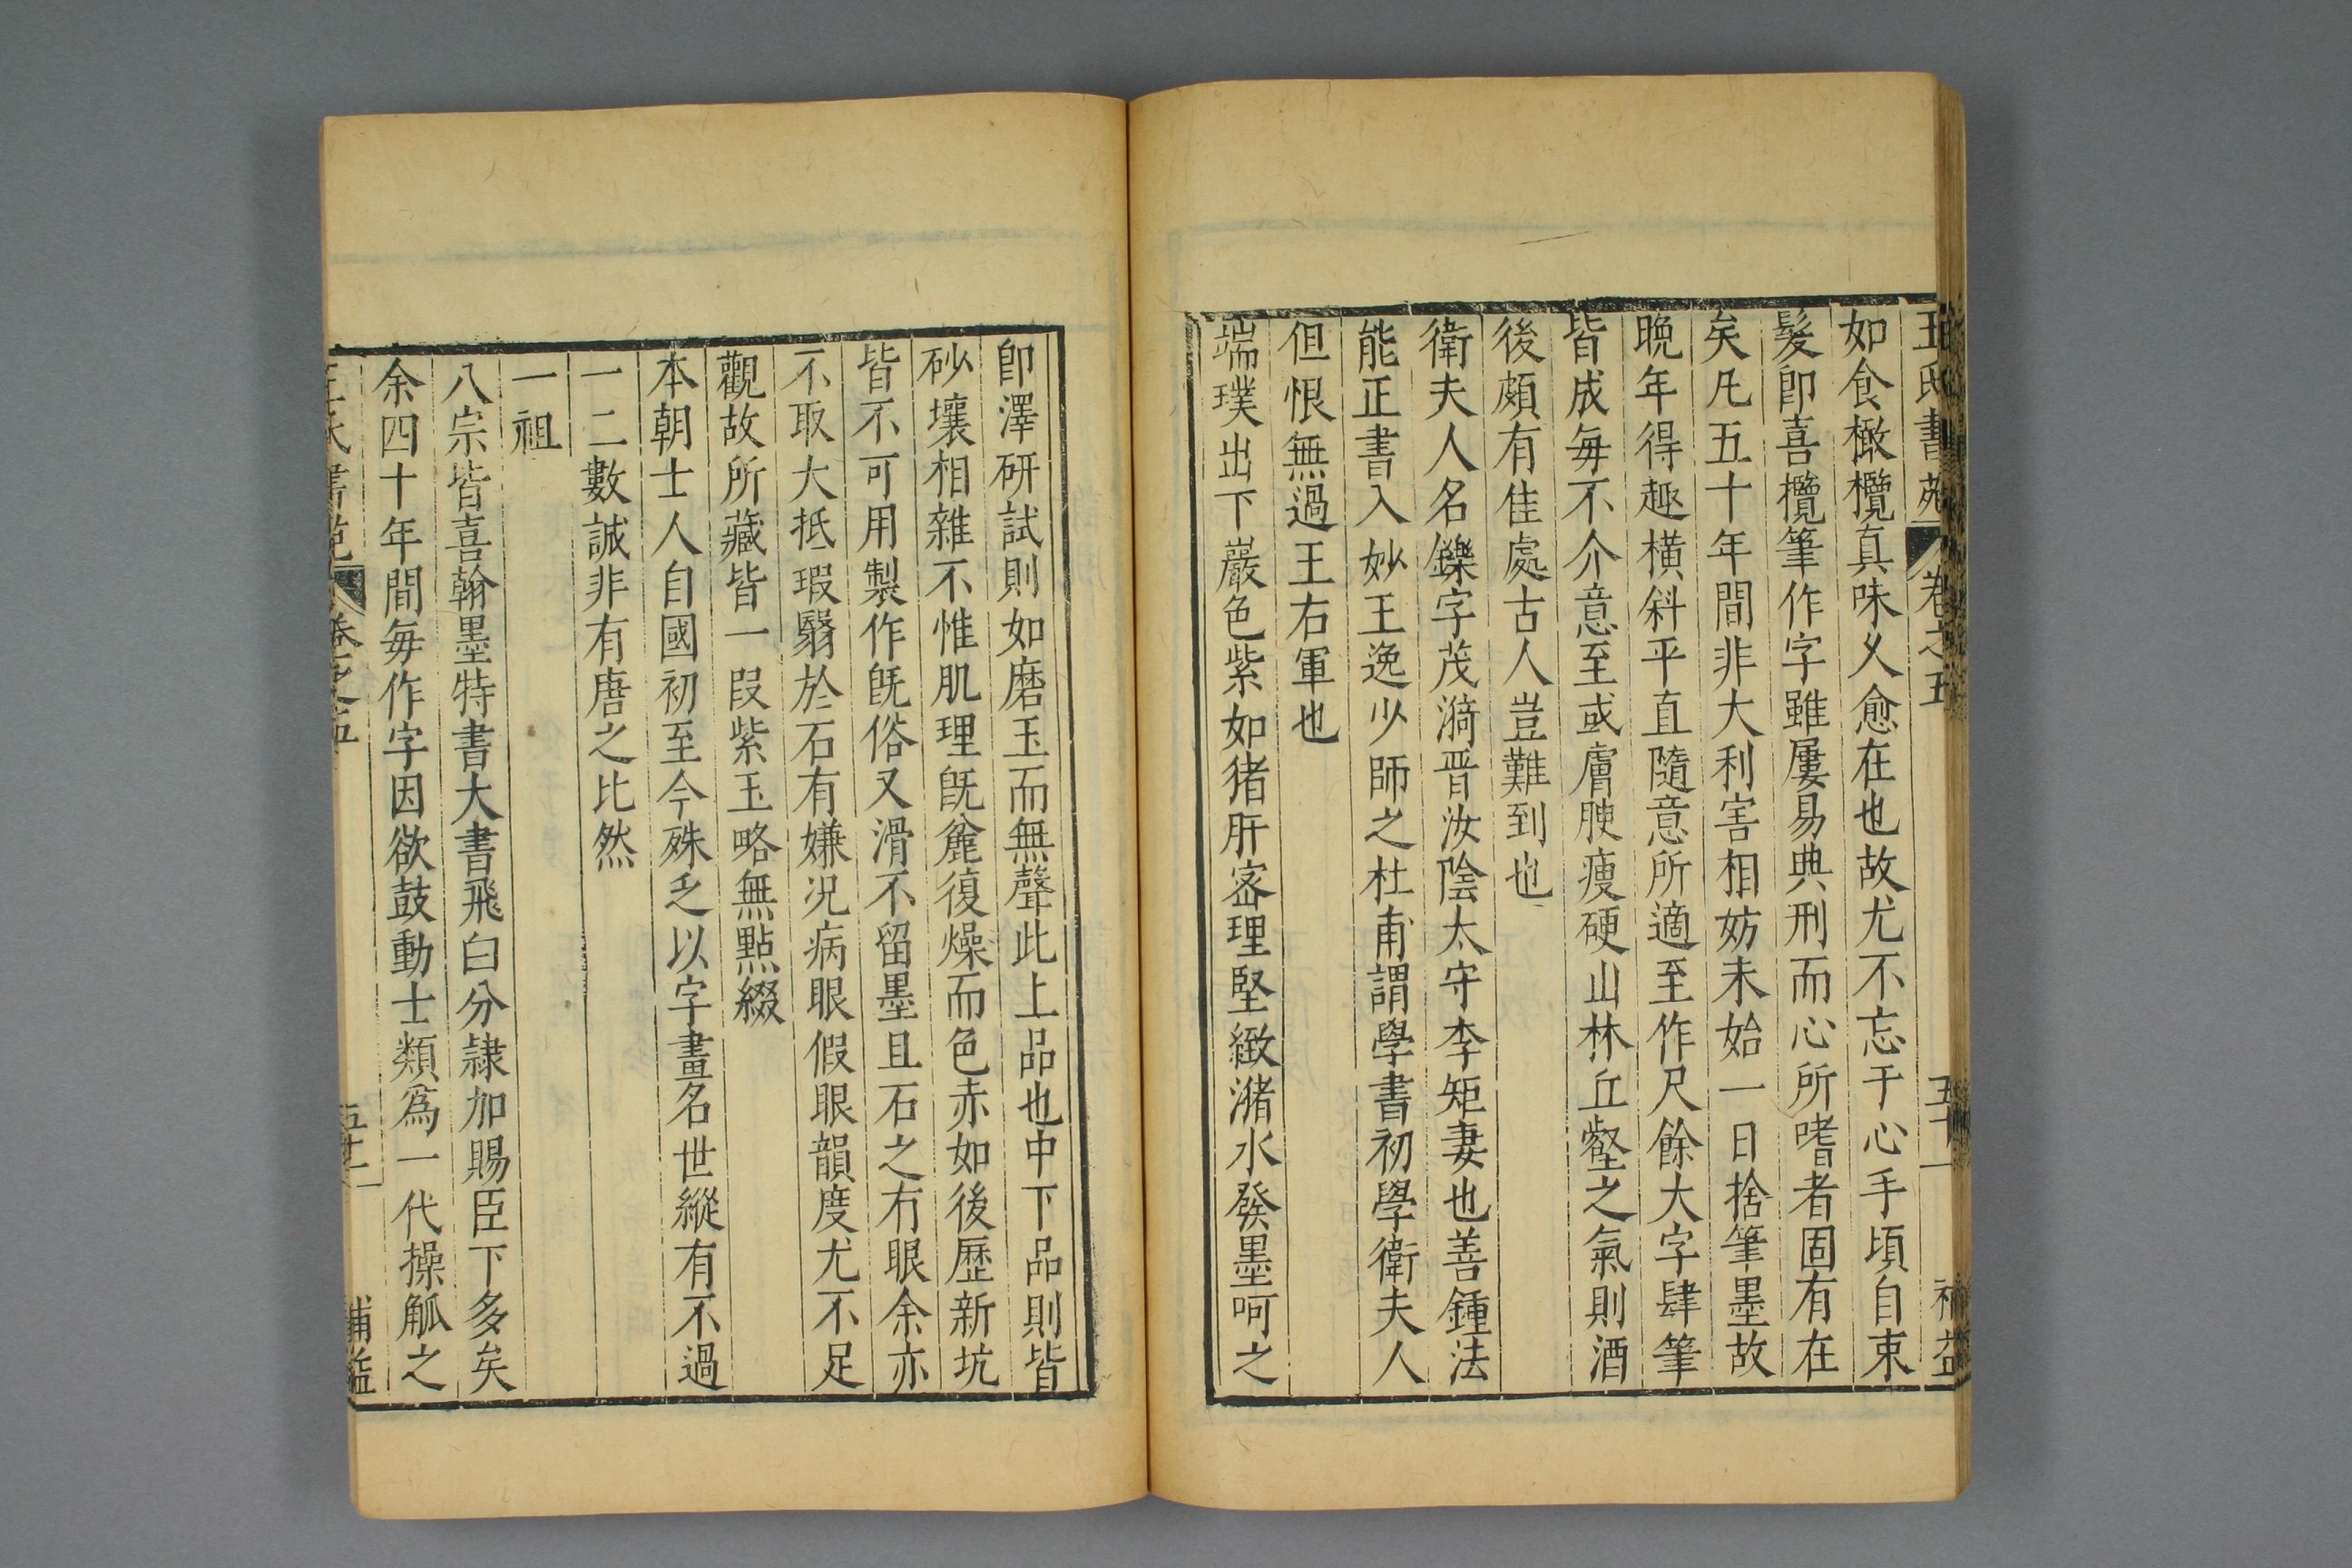 王氏書苑 卷之五 五十一 補益
如食橄欖真味乆愈在也故尤不忘于心手頃自束
髮卽喜攬筆作字雖屢易典刑而心所嗜者固有在
矣凡五十年間非大利害相妨未始一日捨筆墨故
晚年得趣橫斜平直隨意所適至作尺餘大字肆筆
皆成每不介意至或膚腴瘦硬山林丘壑之氣則酒
後頗有佳處古人豈難到也
衛夫人名鑠字茂漪晋汝陰太守李矩妻也善鍾法
能正書入妙王逸少師之杜甫謂學書初學衛夫人
但恨無過王右軍也
端璞出下巖色紫如猪肝宻理堅緻潴水發墨呵之
卽澤研試則如磨玉而無聲此上品也中下品則皆
砂壤相雜不惟肌理旣麄復燥而色赤如後歷新坑
皆不可用製作旣俗又滑不留墨且石之冇眼余亦
不取大抵瑕翳於石有嫌况病眼假眼韻度尤不足
觀故所藏皆一段紫玉略無點綴
本朝士人自國初至今殊乏以字畫名世縱有不過
一二數誠非有唐之比然
一祖
八宗皆喜翰墨特書大書飛白分隷加賜臣下多矣
余四十年間每作字因欲鼓動士類爲一代操觚之
王氏書苑 卷之五 五十二 補益